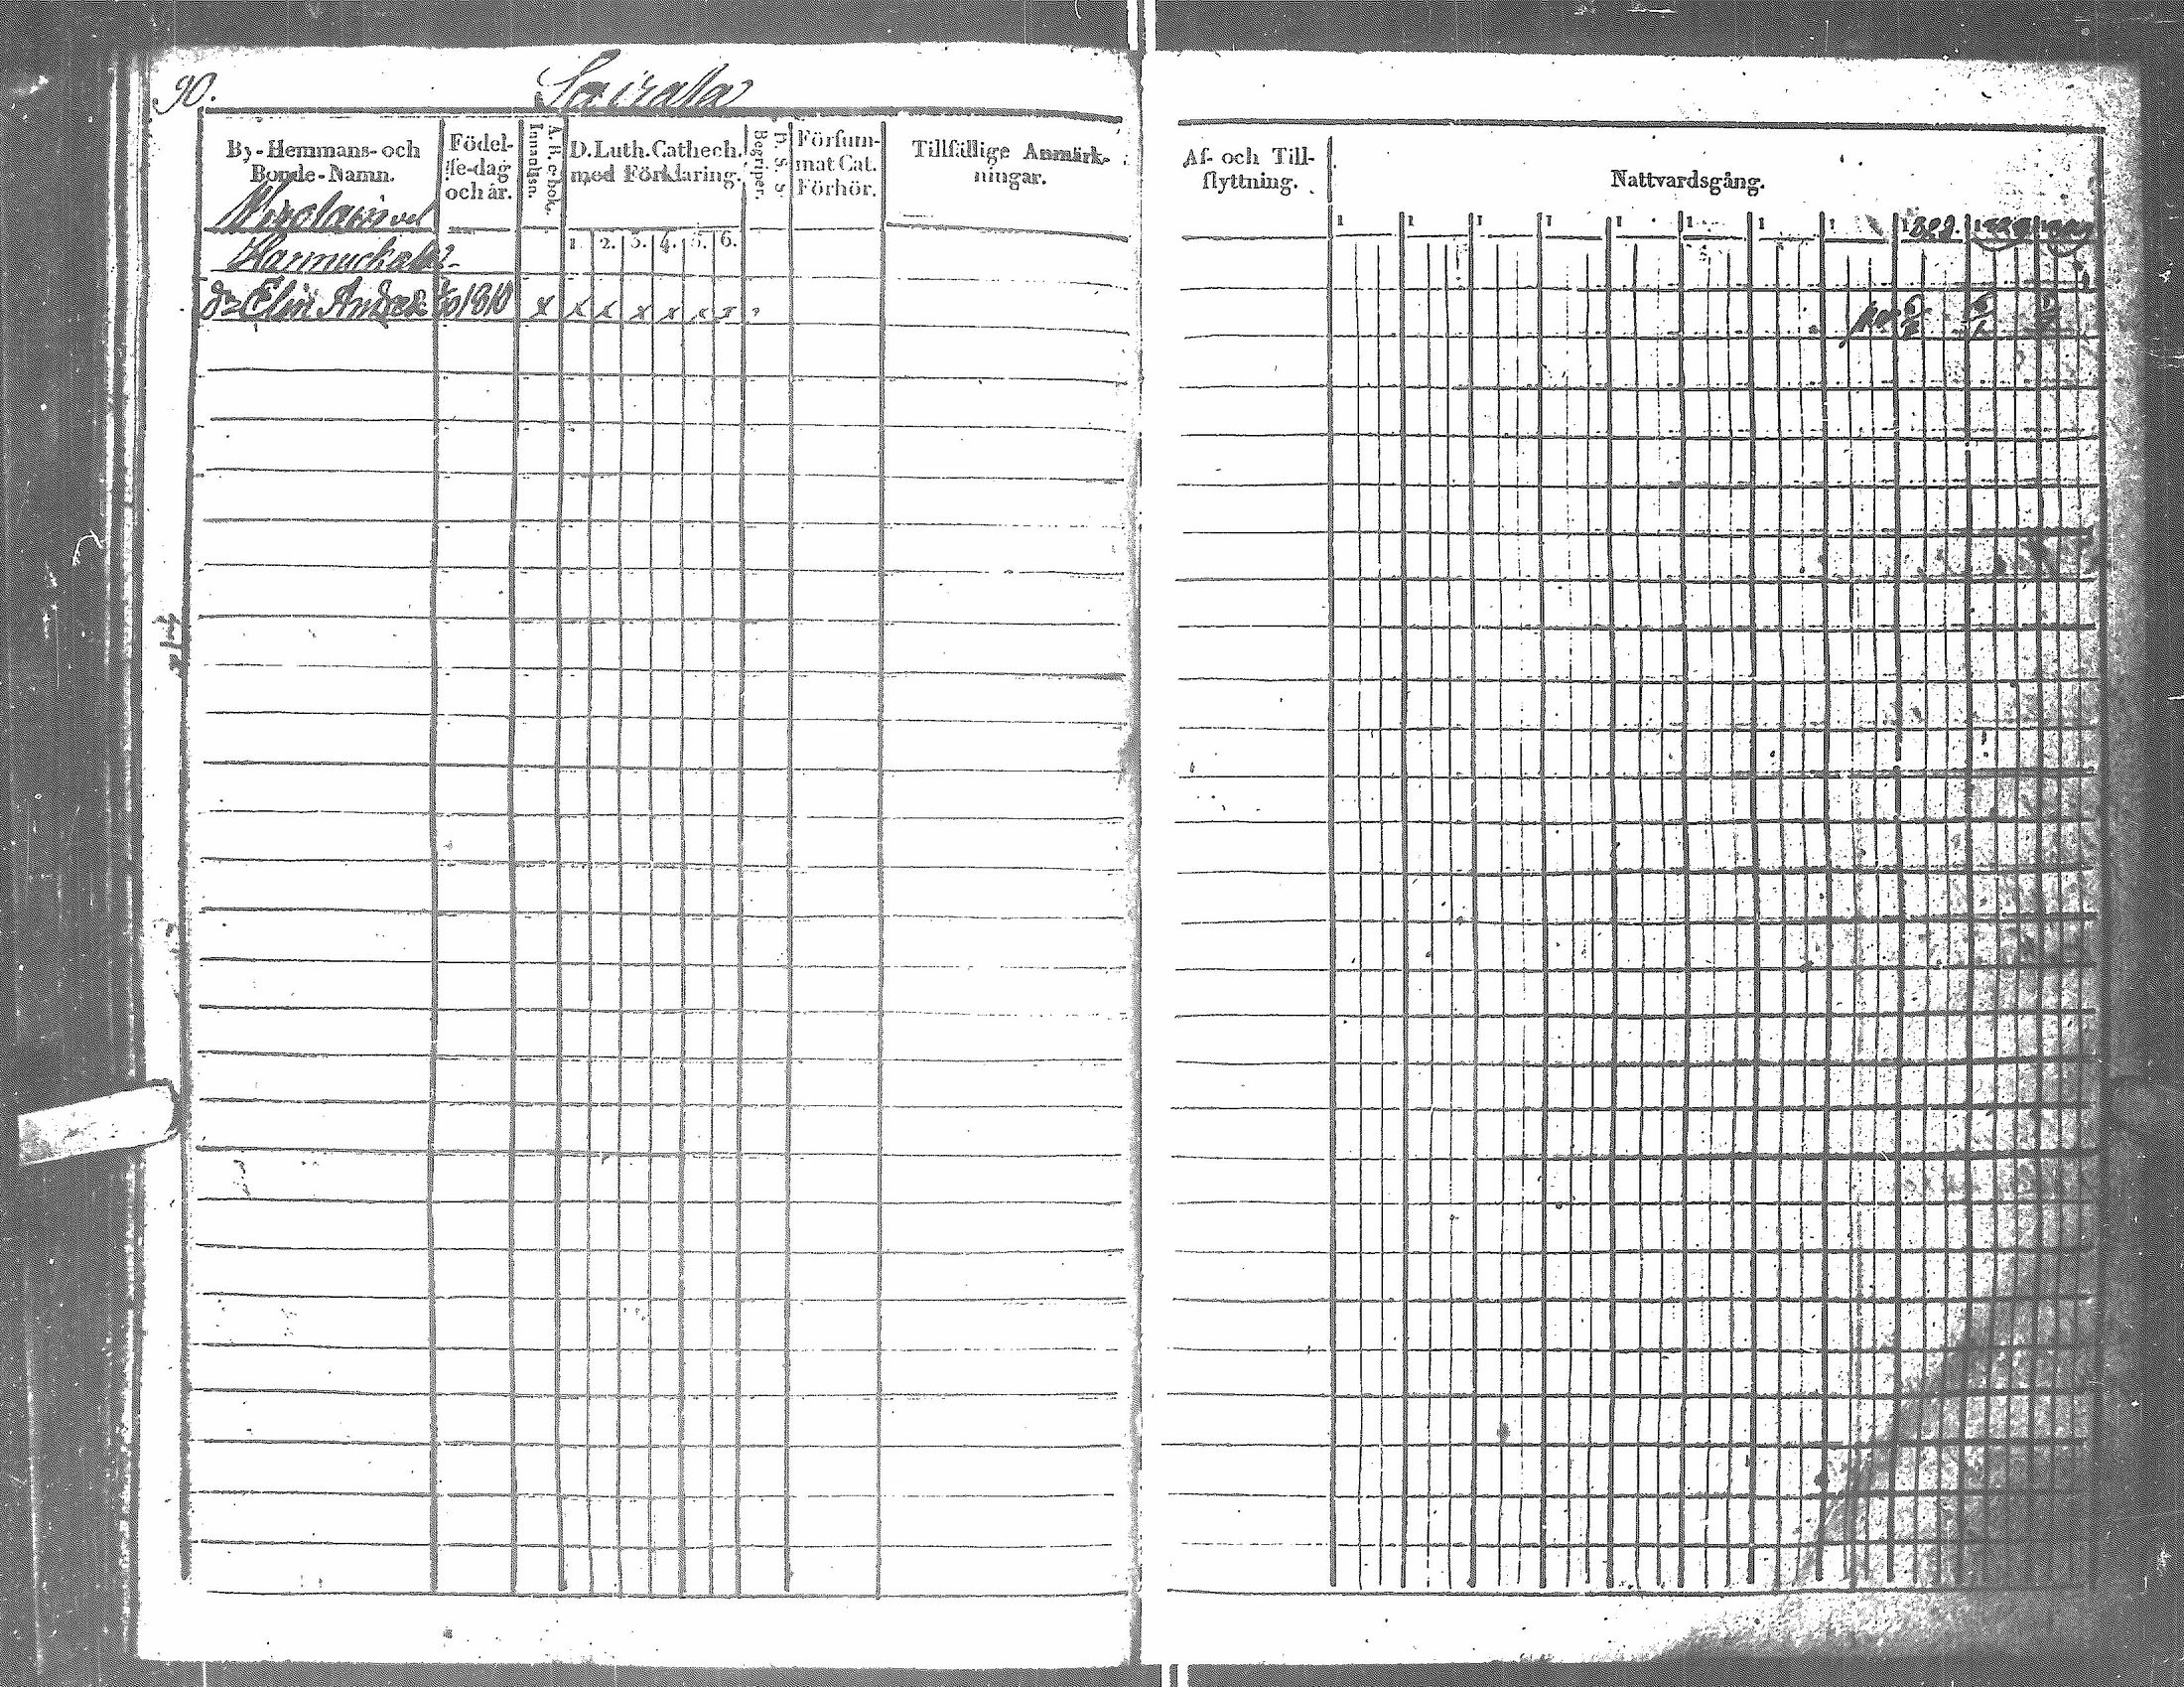 90.
Sairala
By-Hemmans- och
Bonde-Namn.
Födel-
se-dag
och år.
A.B.c-bok.
Innanläsn.
D. Luth. Cathech.
med Förklaring.
1. 2. 3. 4. 5. 6.
Begriper.
Försum-
mat Cat.
Förhör.
Tillfällige Anmärk-
ningar.
Harmuckala
Elin Anders 1810 x x x x x x x
Af- och Till-
flyttning.
Nattvardsgång.
1 1 1 1 1 1 1 1